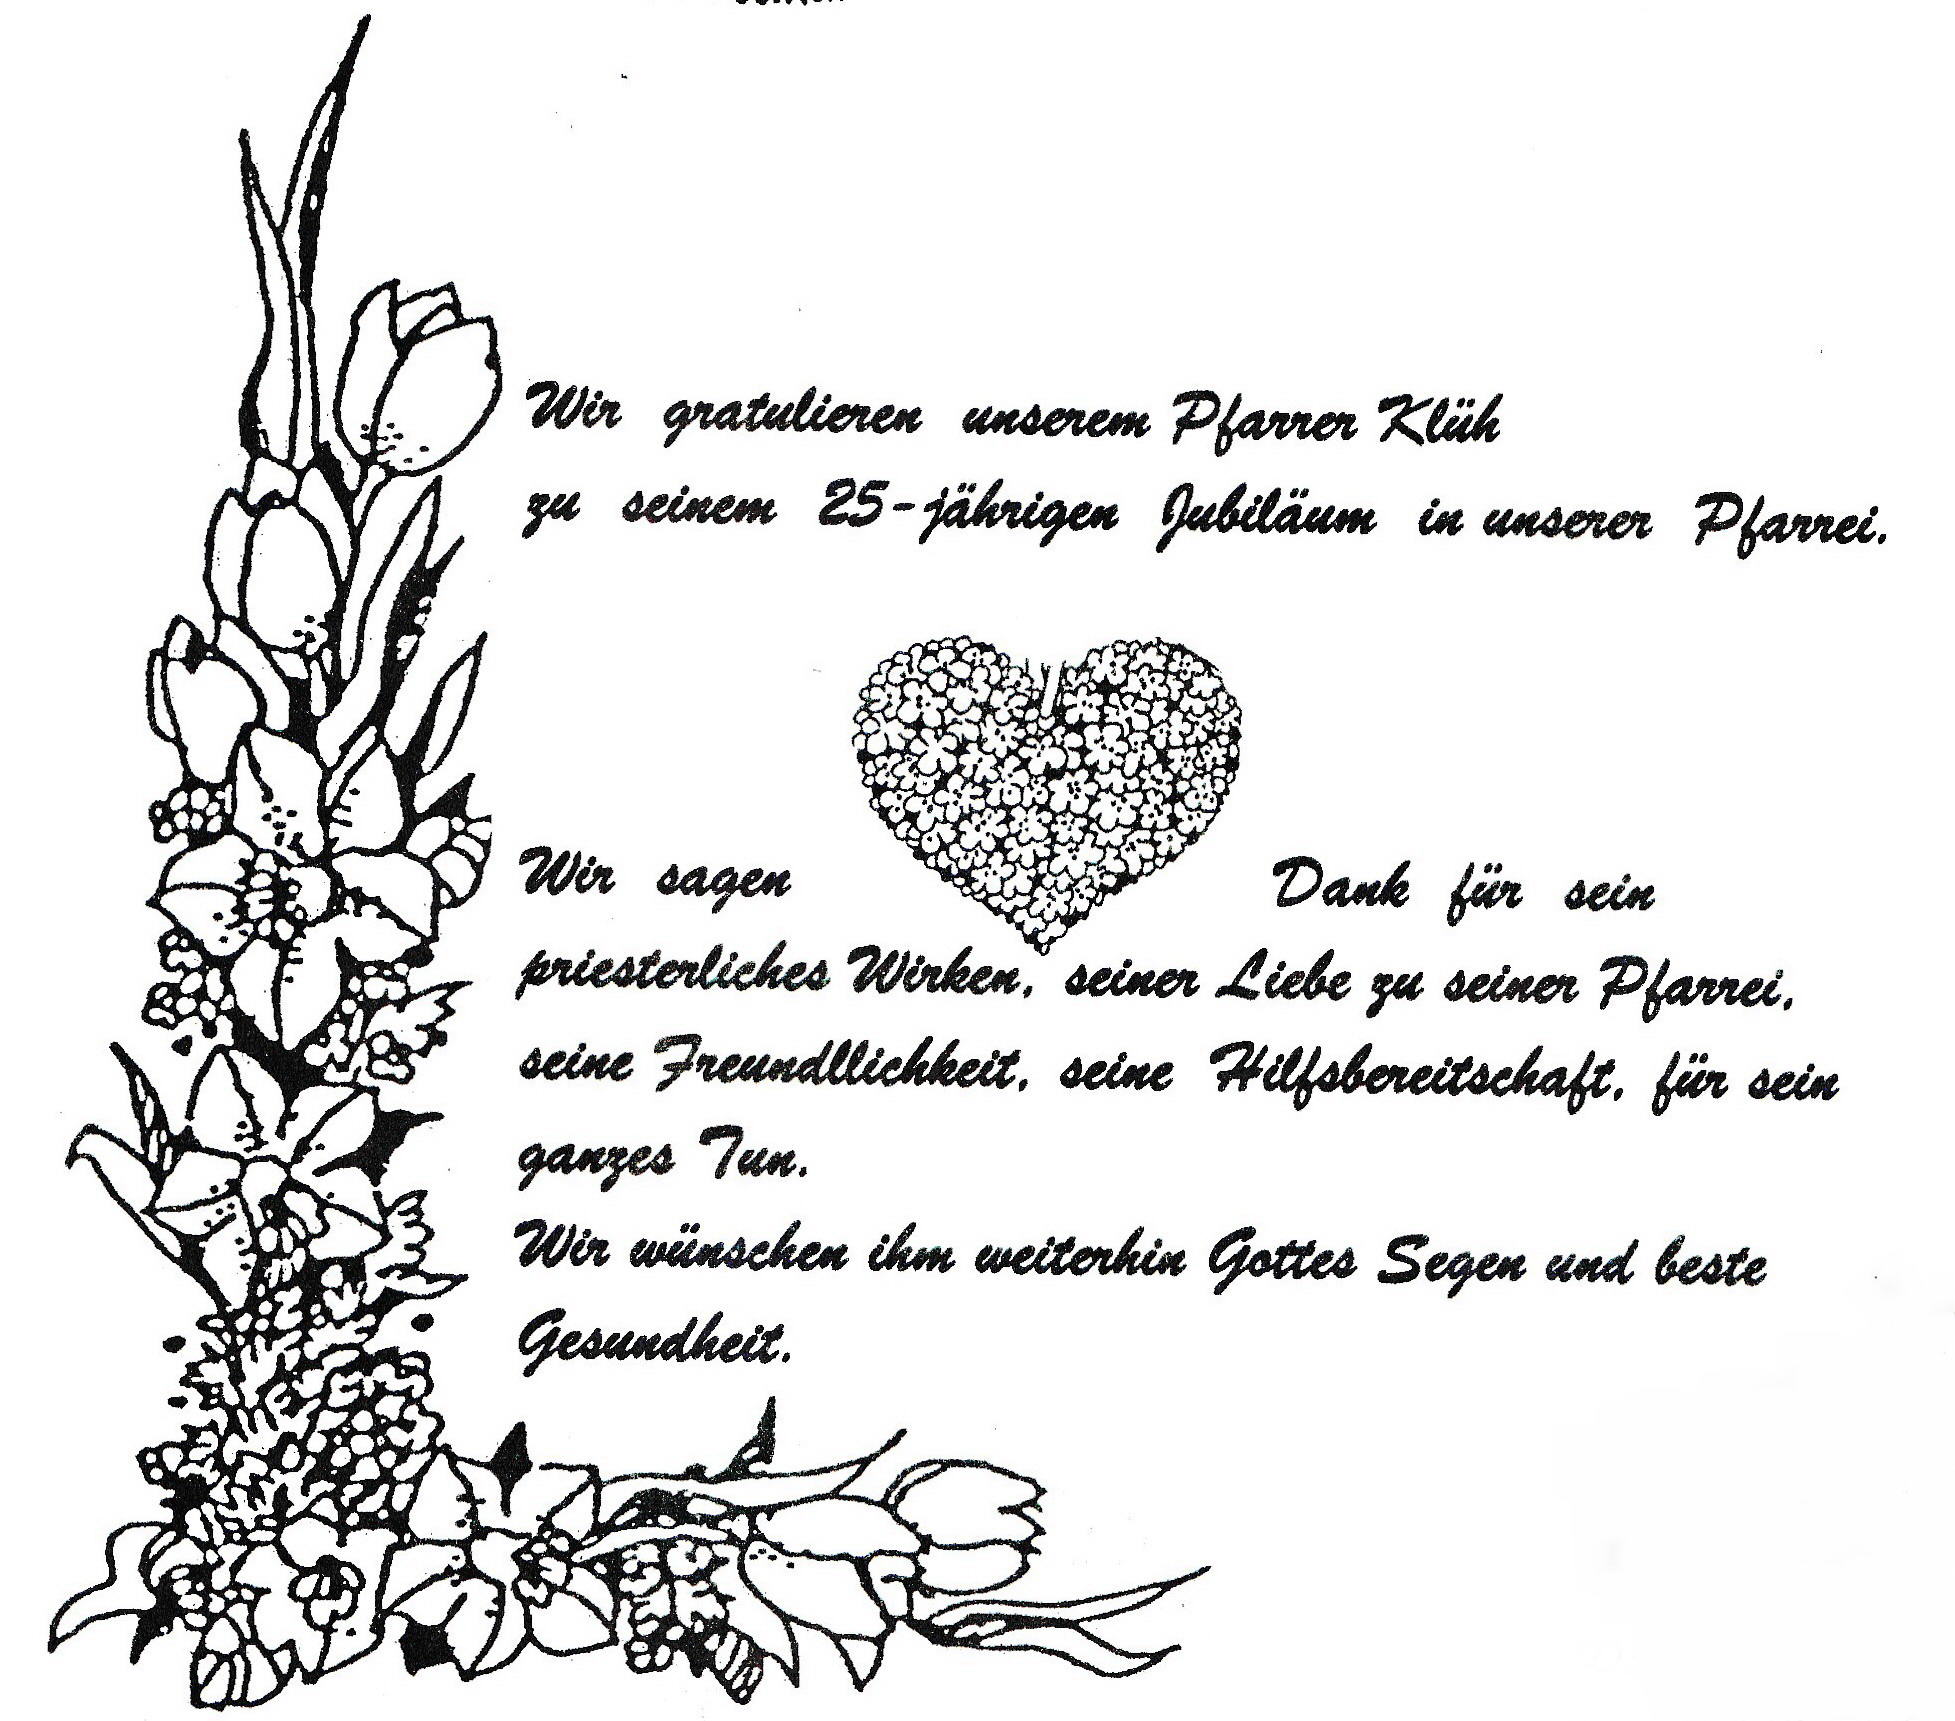 Wir gratulieren unserem Pfarrer Klüh
zu seinem 25-jährigen Jubiläum in unserer Pfarrei.
Wir sagen Dank für sein
priesterliches Wirken, seiner Liebe zu seiner Pfarrei,
seine Freundllichkeit, seine Hilfsbereitschaft, für sein
ganzes Tun.
Wir wünschen ihm weiterhin Gottes Segen und beste
Gesundheit.